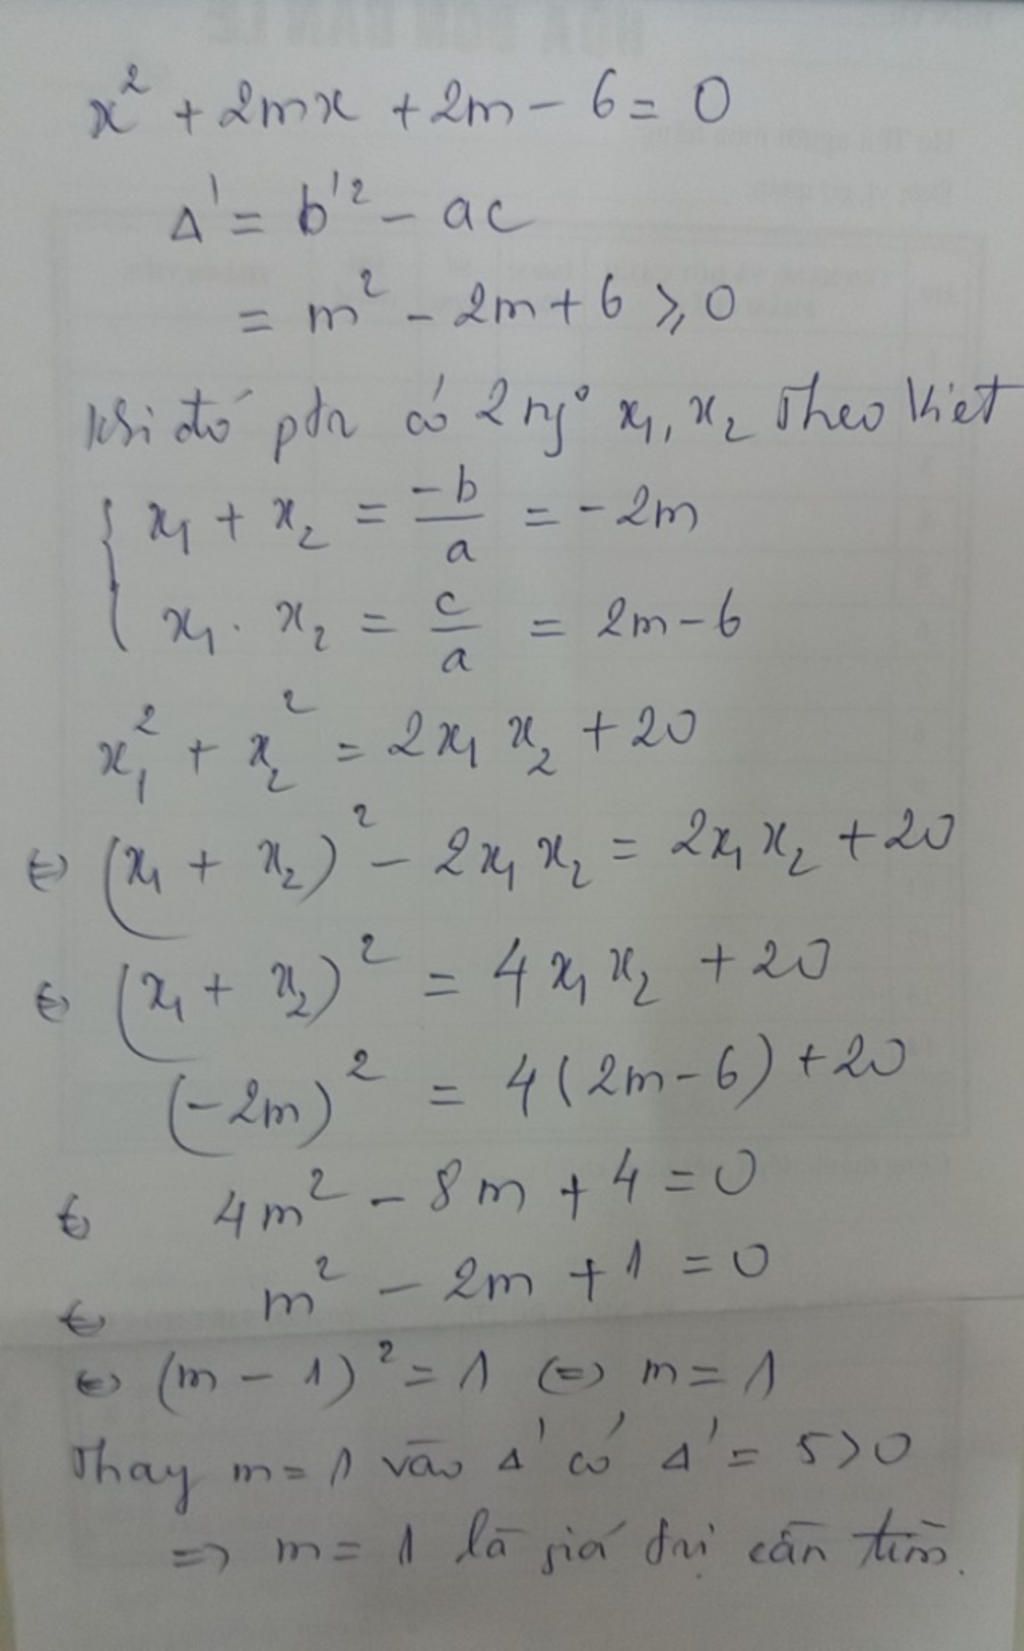 x² + 2mx + 2m - 6 = 0
Δ' = b'² - ac
= m² - 2m + 6 ≥ 0
Khi đó ptr có 2 ng° x₁, x₂ Theo Viet
{ x₁ + x₂ = -b/a = -2m
x₁ . x₂ = c/a = 2m - 6
x₁² + x₂² = 2x₁ x₂ + 20
⇔ (x₁ + x₂)² - 2x₁ x₂ = 2x₁ x₂ + 20
⇔ (x₁ + x₂)² = 4x₁ x₂ + 20
(-2m)² = 4(2m - 6) + 20
⇔ 4m² - 8m + 4 = 0
⇔ m² - 2m + 1 = 0
⇔ (m - 1)² = 1 ⇔ m = 1
Thay m = 1 vào Δ' có Δ' = 5 > 0
=> m = 1 là giá trị cần tìm.